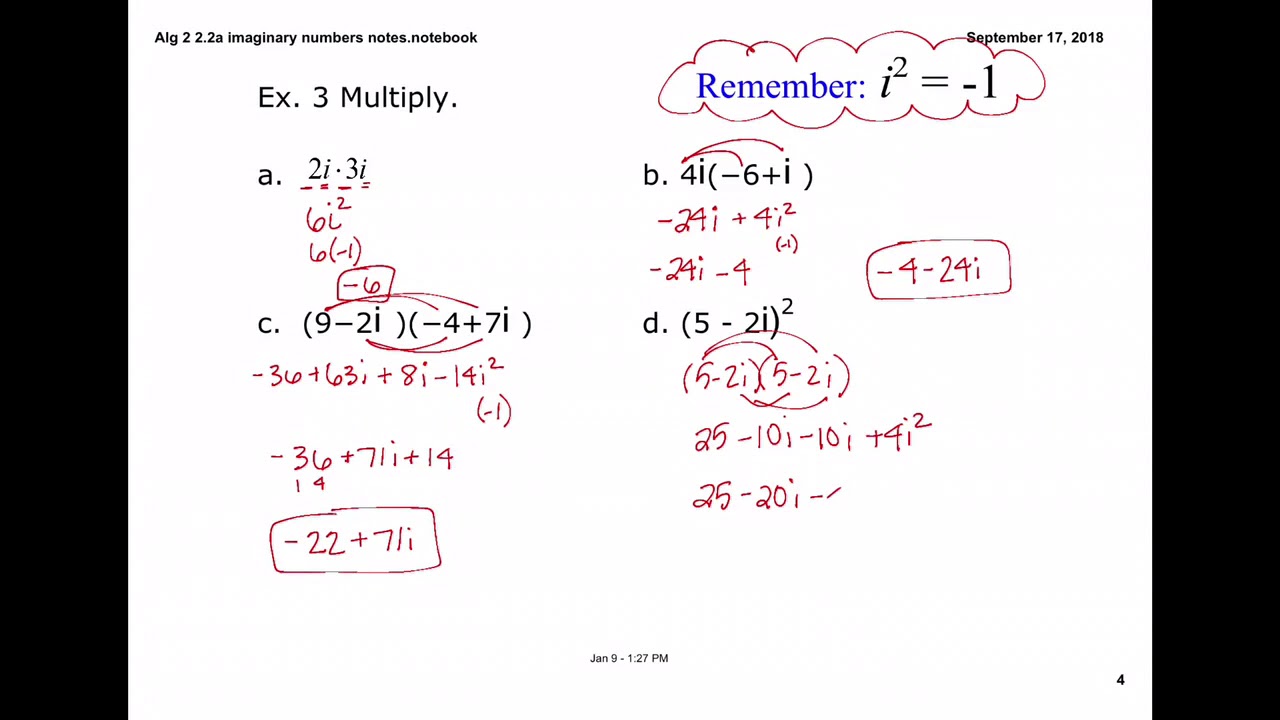 Alg 2 2.2a imaginary numbers notes.notebook
September 17, 2018
Ex. 3 Multiply.
Remember: i² = -1
a. 2i · 3i
6i²
6(-1)
-6
b. 4i(−6+i )
-24i + 4i²
(-1)
-24i - 4
-4-24i
c. (9−2i )(−4+7i )
-36+63i+8i-14i²
(-1)
-36+71i+14
14
-22+71i
d. (5 - 2i)²
(5-2i)(5-2i)
25-10i-10i+4i²
25-20i-
Jan 9 - 1:27 PM
4